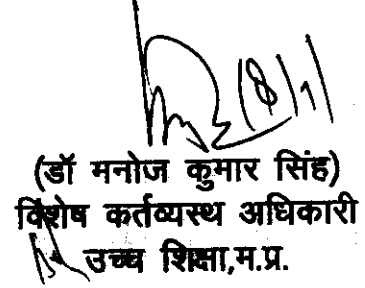 18/1
(डॉ मनोज कुमार सिंह)
विशेष कर्तव्यस्थ अधिकारी
उच्च शिक्षा,म.प्र.